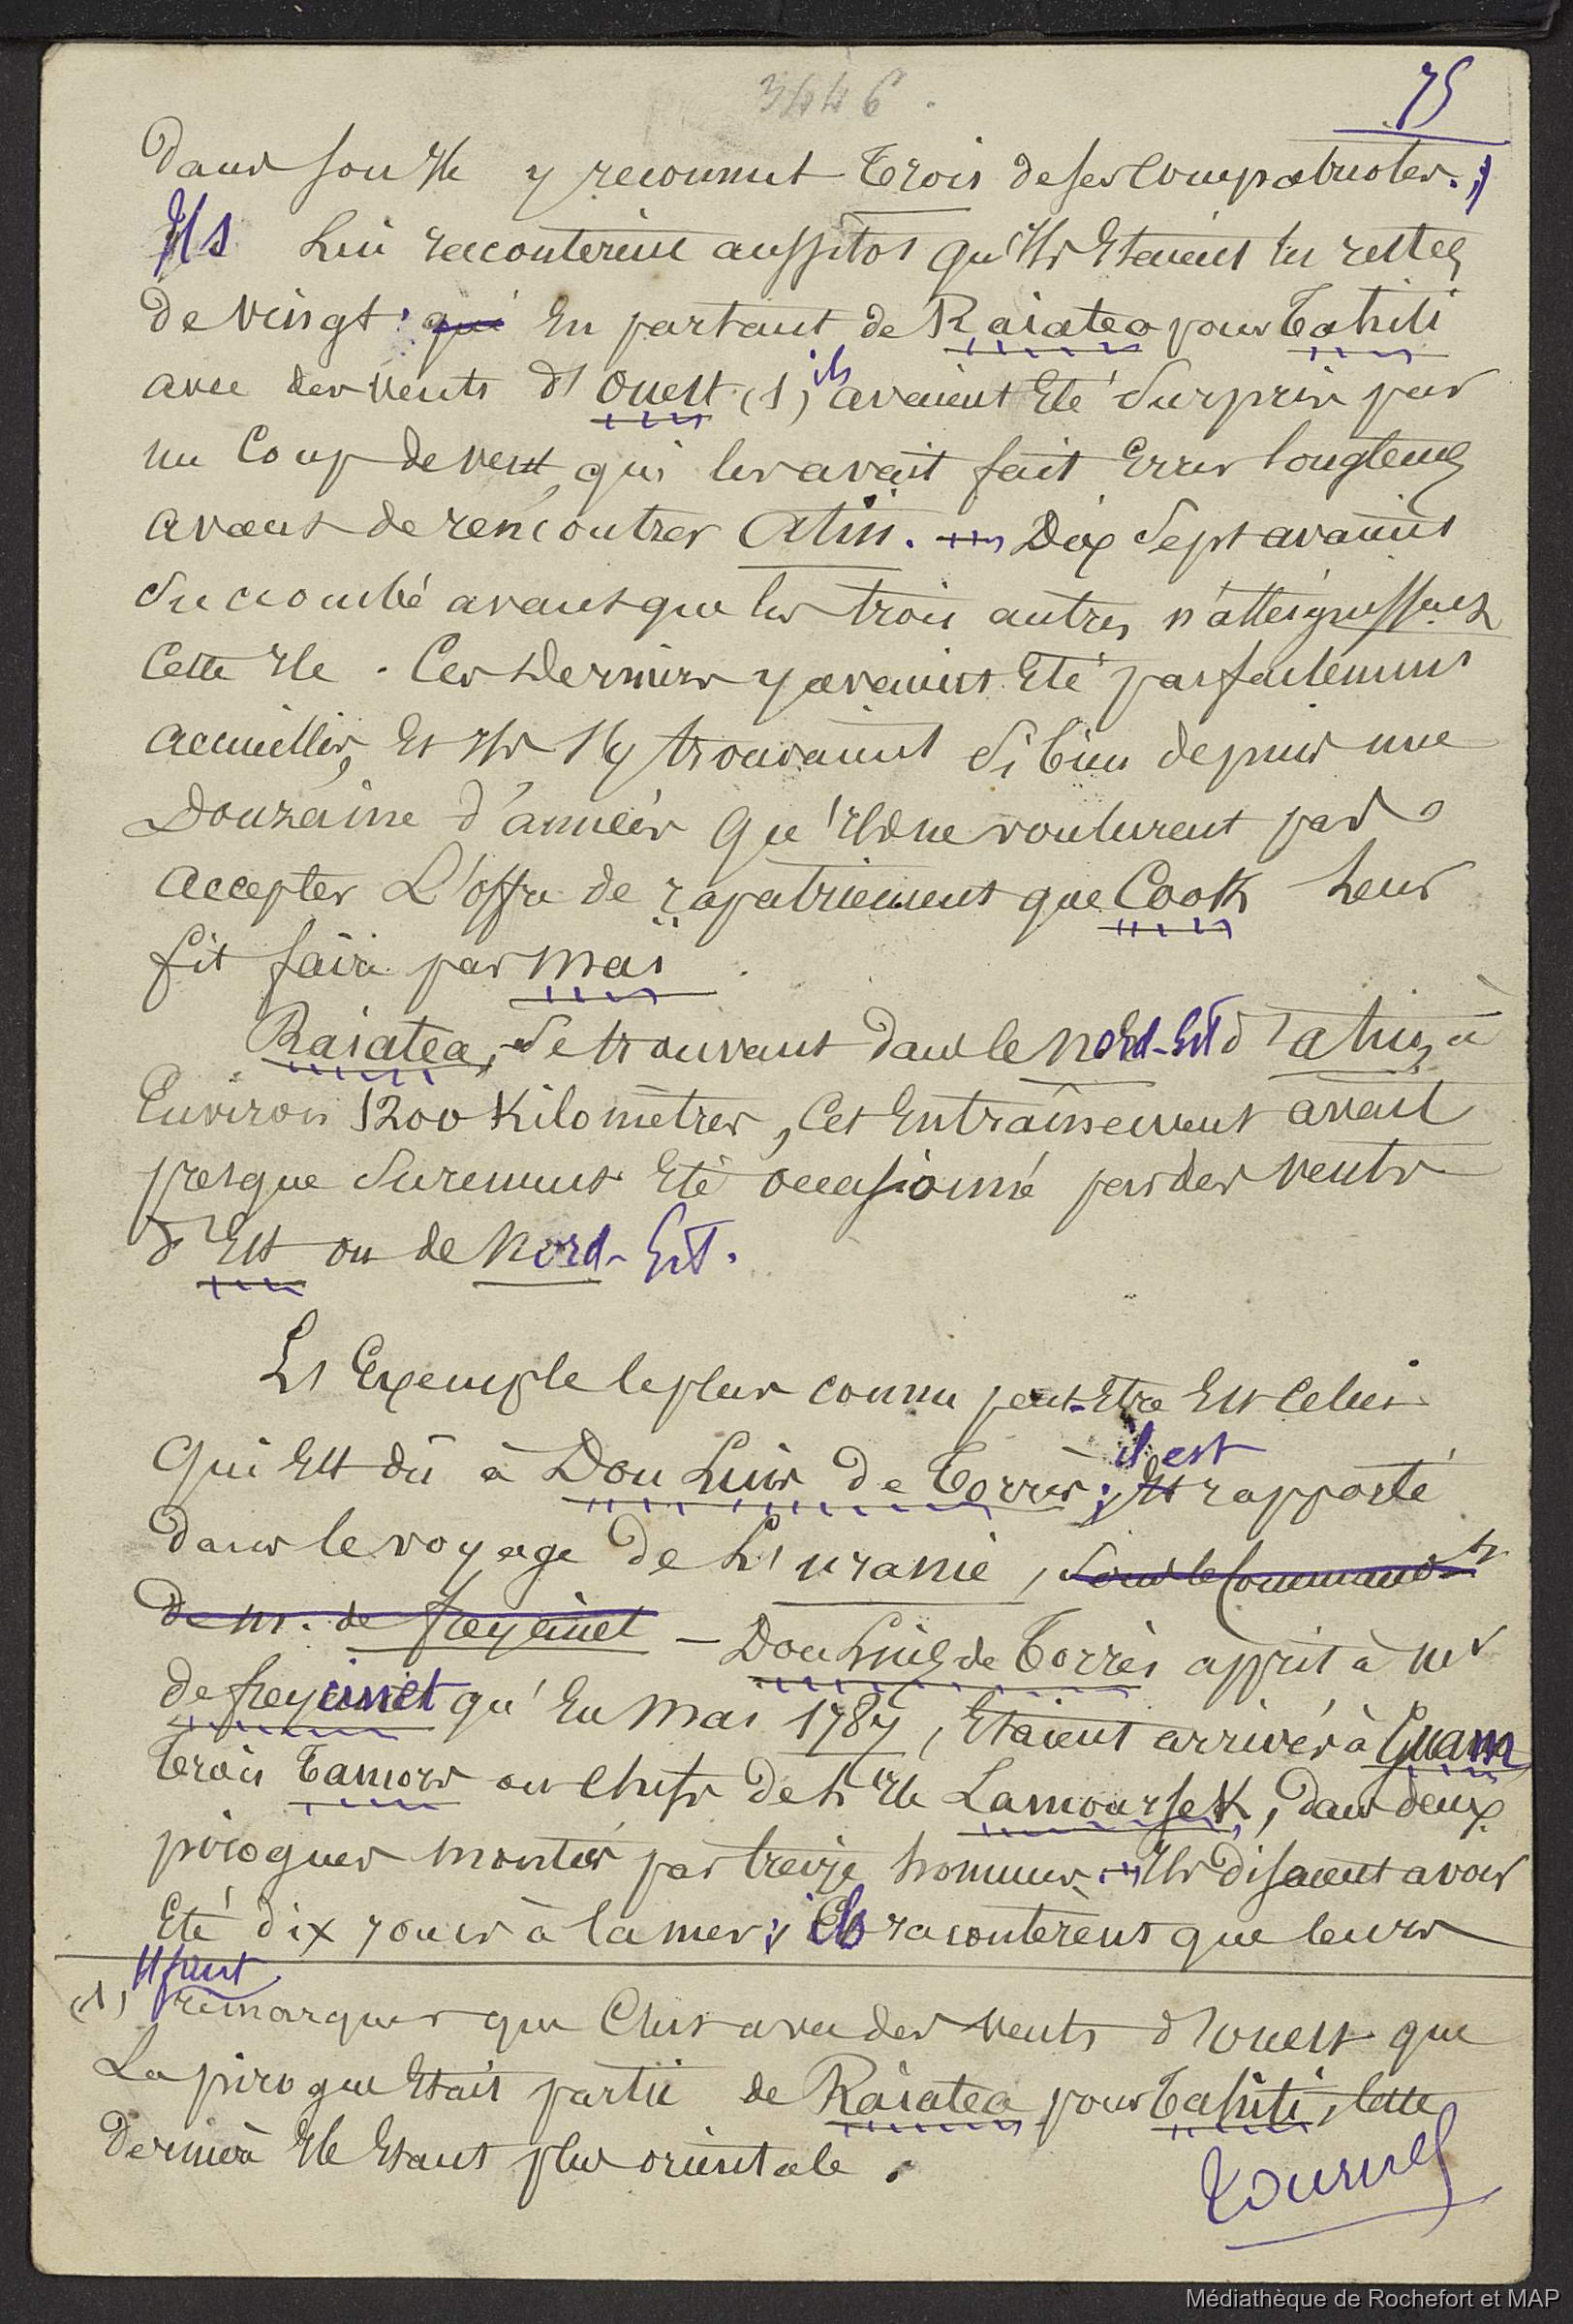 3446.
75
dans son Ile y reconnut trois de ses Compatriotes.;
Ils Lui racontèrent aussitôt qu'Ils Etaient les restes
de vingt; qui En partant de Raiatea pour Tahiti
avec des vents d'Ouest (1) ils avaient Eté Surpris par
un Coup de vent, qui les avait fait Errer longtems
avant de rencontrer Atiu. — Dix Sept avaient
Succombé avant que les trois autres n'atteignissent
Cette Ile. Ces Derniers y avaient Eté parfaitement
accueillis, Et Ils s'y trouvaient Si bien depuis une
Douzaine d'années qu'Ils ne voulurent pas
accepter L'offre de rapatriement que Cook Leur
fit faire par Maï.
Raiatea, se trouvant dans le Nord-Est d'Atiu, à
Environ 1200 Kilomètres, Cet Entraînement avait
presque Surement Eté occasionné par des vents
d'Est ou de Nord-Est.
L'Exemple le plus connu peut-Etre Est Celui
qui Est dû à Don Luis de Torrès; il est Et rapporté
dans le voyage de L'uranie, sous le Commandt
de M. de freycinet — Don Luis de Torrès apprit à Mr
de freycinet qu'En Mai 1787, Etaient arrivés à Guam
trois Tamors ou Chefs de L'Ile Lamoursek, dans deux
pirogues montées par treize hommes. — Ils Disaient avoir
Eté dix jours à la mer; ils racontèrent que leurs
(1) Il faut remarquer que C'est avec des vents d'ouest que
La pirogue Etait partie de Raiatea pour Tahiti, cette
dernière Ile Etant plus orientale.
tournez
Médiathèque de Rochefort et MAP